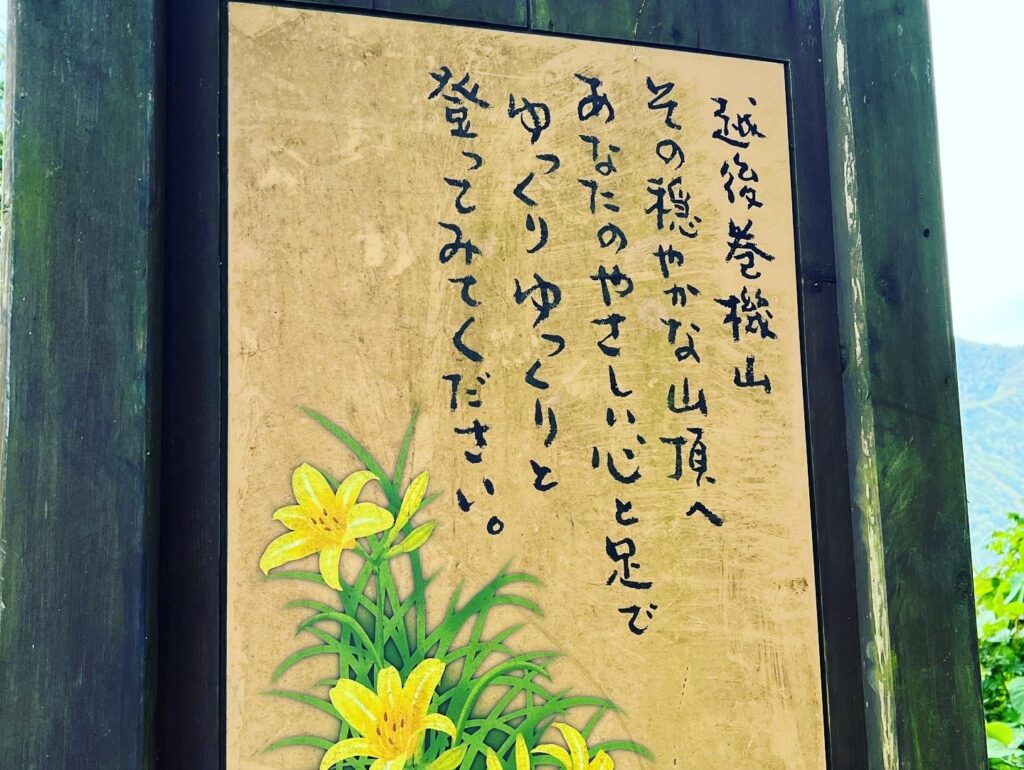 越後巻機山
その穏やかな山頂へ
あなたのやさしい心と足で
ゆっくりゆっくりと
登ってみてください。